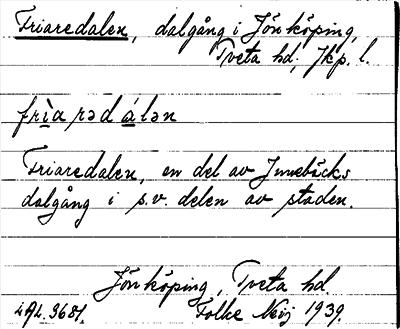 Friaredalen, dalgång i Jönköping,
Tveta hd, Jkp. l.
fri̲a rəd á̲lən
Friaredalen, en del av Junebäcks
dalgång i s.v. delen av staden.
Jönköping, Tveta hd.
Folke Meij 1939.